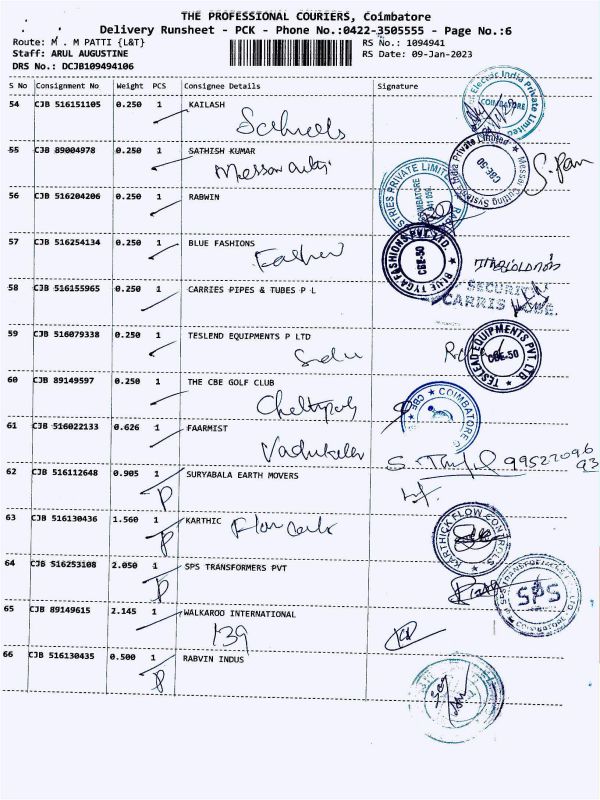 THE PROFESSIONAL COURIERS, Coimbatore
Delivery Runsheet - PCK - Phone No.:0422-3505555 - Page No.:6
Route: M . M PATTI {L&T}
RS No.: 1094941
Staff: ARUL AUGUSTINE
RS Date: 09-Jan-2023
DRS No.: DCJB109494106
S No Consignment No Weight PCS Consignee Details Signature
54 CJB 516151105 0.250 1 KAILASH
55 CJB 89004978 0.250 1 SATHISH KUMAR
56 CJB 516204206 0.250 1 RABWIN
57 CJB 516254134 0.250 1 BLUE FASHIONS
BLUE TYGA FASHIONS PVT. LTD. CBE-50
58 CJB 516155965 0.250 1 CARRIES PIPES & TUBES P L
SECURITY
59 CJB 516079338 0.250 1 TESLEND EQUIPMENTS P LTD
TESLEAD EQUIPMENTS PVT. LTD. CBE-50
60 CJB 89149597 0.250 1 THE CBE GOLF CLUB
61 CJB 516022133 0.626 1 FAARMIST
62 CJB 516112648 0.905 1 SURYABALA EARTH MOVERS
P
63 CJB 516130436 1.560 1 KARTHIC
P
KARTHICK FLOW CONTROLS
64 CJB 516253108 2.050 1 SPS TRANSFORMERS PVT
P
SPS
65 CJB 89149615 2.145 1 WALKAROO INTERNATIONAL
139
66 CJB 516130435 0.500 1 RABVIN INDUS
P